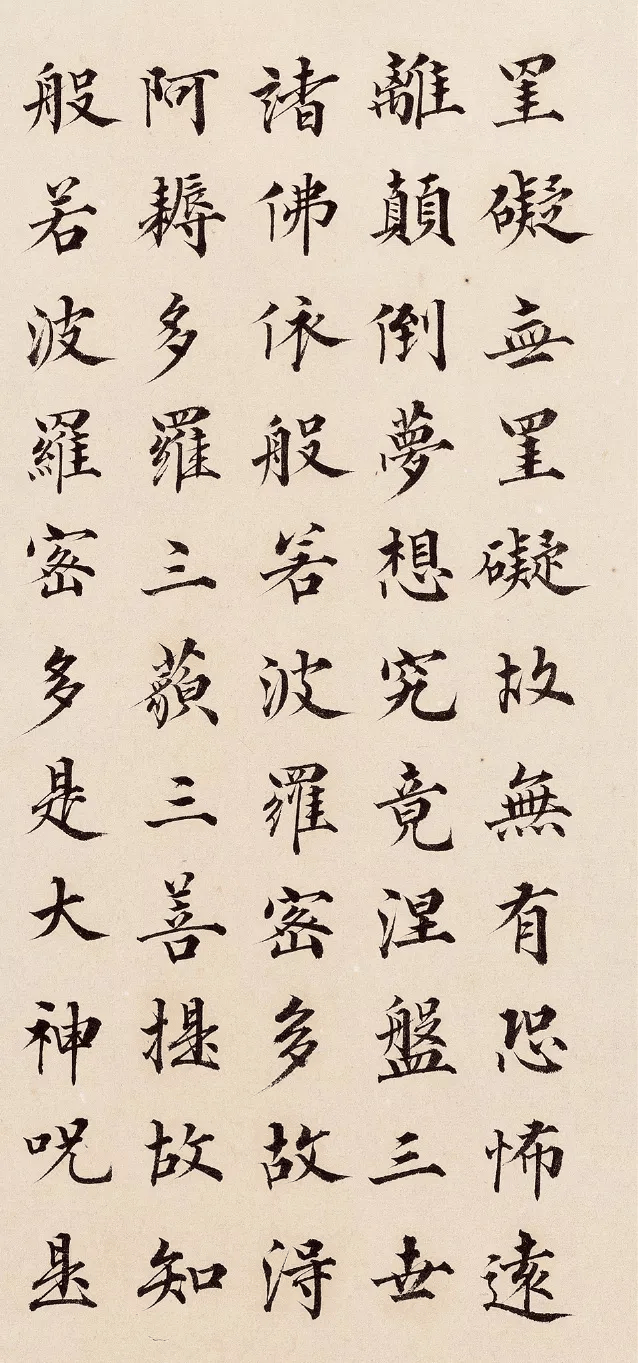 罣礙無罣礙故無有恐怖遠
離顛倒夢想究竟涅盤三世
諸佛依般若波羅密多故得
阿耨多羅三藐三菩提故知
般若波羅密多是大神呪是